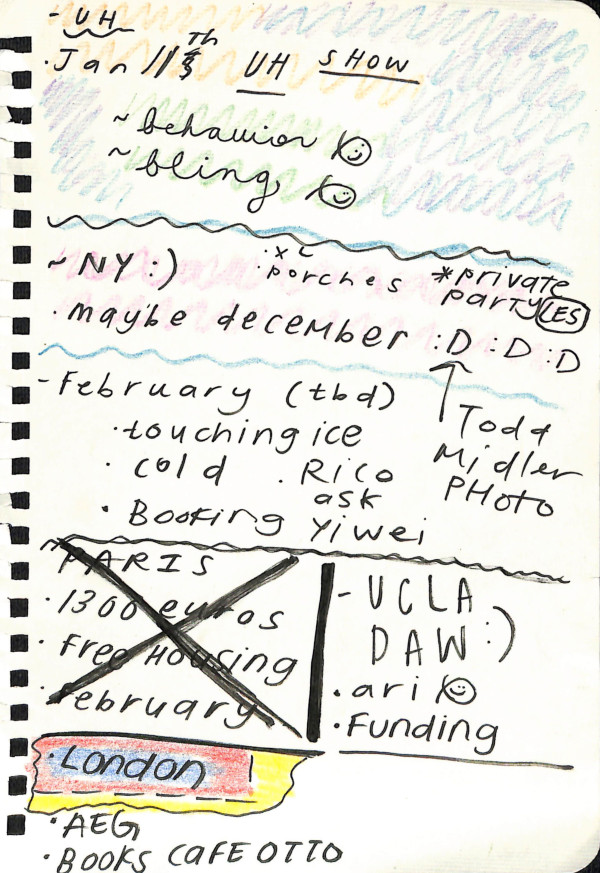 - UH
· Jan 11th UH SHOW
~ behavior
~ bling
~ NY :)
· xc
porches
*private
party LES
· maybe december :D :D :D
- February (tbd)
· touching ice
· cold · Rico
ask
· Booking Yiwei
Todd
Midler
PHoto
~ PARIS
· 1300 euros
· free Housing
· february
- UCLA
DAW :)
· ari
· Funding
· London
· AEG
· BOOKS CAFE OTTO